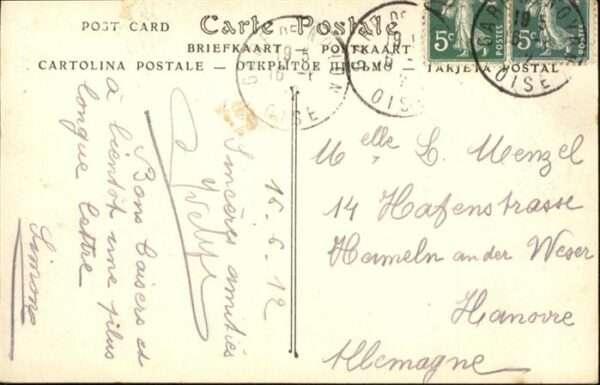 POST CARD Carte Postale
BRIEFKAART — POSTKAART
CARTOLINA POSTALE — ОТКРЫТОЕ ПИСЬМО — TARJETA POSTAL
5c POSTES
5c POSTES
OISE
OISE
OISE
16-6-12
Sincères amitiés
Bons baisers et
à bientôt une plus
longue lettre
Simone
Melle L. Menzel
14 Hafenstrasse
Hameln an der Weser
Hanovre
Allemagne